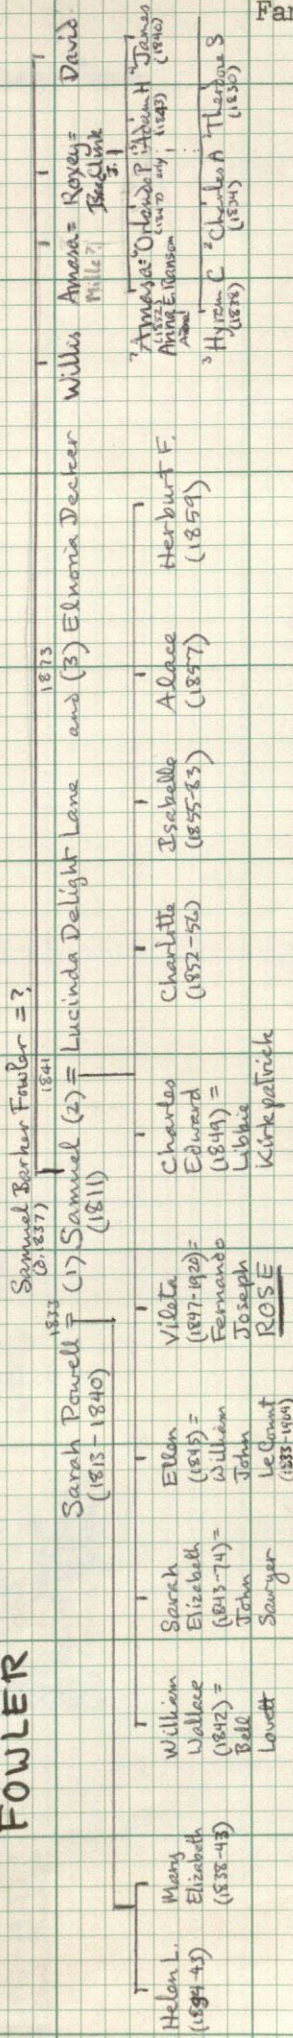 FOWLER
Fa
Samuel Barker Fowler = ?
(d.1837)
1833
1841
1873
Sarah Powell = (1) Samuel (2) = Lucinda Delight Lane and (3) Elnoria Decker
(1813-1840)
(1811)
Willis
Amasa =
Mills?
Roxey =
David
Helen L.
Mary
Elizabeth
(1838-43)
William
Wallace
(1842) =
Bell
Lovett
Sarah
Elizabeth
(1843-74) =
John
Sawyer
Ellen
(1845) =
William
John
LeCount
(1833-1904)
Vileta
(1847-1920) =
Fernando
Joseph
ROSE
Charles
Edward
(1849) =
Libbie
Kirkpatrick
Charlotte
(1852-56)
Isabelle
(1855-83)
Alace
(1857)
Herburt F.
(1859)
7 Amasa =
(1852)
Anna E. Ransom
Orlando P
Adam H
(1843)
James
(1840)
3 Hyrum C
(1838)
2 Charles A
(1834)
Theodore S
(1830)